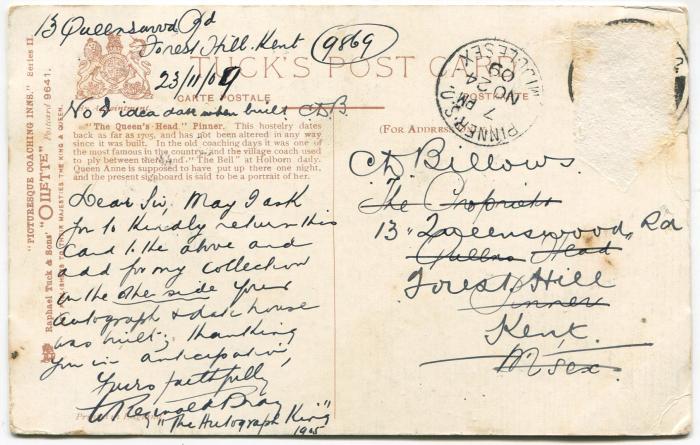 13 Queenswood Rd
Forest Hill. Kent
9869
23/11/09
TUCK'S POST CARD
CARTE POSTALE
POSTKARTE
By Appointment.
No I idea date when built
"The Queen's Head" Pinner. This hostelry dates
back as far as 1705, and has not been altered in any way
since it was built. In the old coaching days it was one of
the most famous in the country, and the village coach used
to ply between there and "The Bell" at Holborn daily.
Queen Anne is supposed to have put up there one night,
and the present signboard is said to be a portrait of her.
Dear Sir, May I ask
you to kindly return this
Card to the above and
add for my collection
on the other side your
autograph & date house
was built, thanking
you in anticipation,
Yours faithfully,
W Reginald Bray
"The Autograph King"
1905
"PICTURESQUE COACHING INNS." Series II.
Raphael Tuck & Sons' "OILETTE" Postcard 9641.
PUBLISHERS TO THEIR MAJESTIES THE KING & QUEEN.
PINNER S.O.
7 PM
NO 24
09
MIDDLESEX
(FOR ADDRESS
Billows
The Proprietor
13 "Queenswood" Rd
Queens Head
Forest Hill
Pinner
Kent
M'sex.